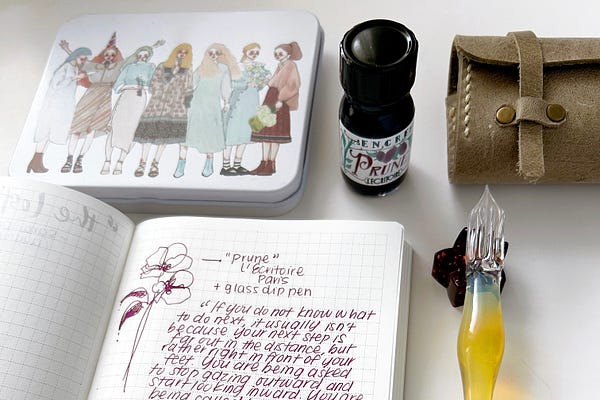 ENCRE
PRUNE
L'ECRITOIRE
the
"Prune"
L'Ecritoire
Paris
+ glass dip pen
"If you do not know what
to do next, it usually isn't
because your next step is
far out in the distance, but
rather right in front of your
feet. You are being asked
to stop gazing outward and
start looking inward. You are
being